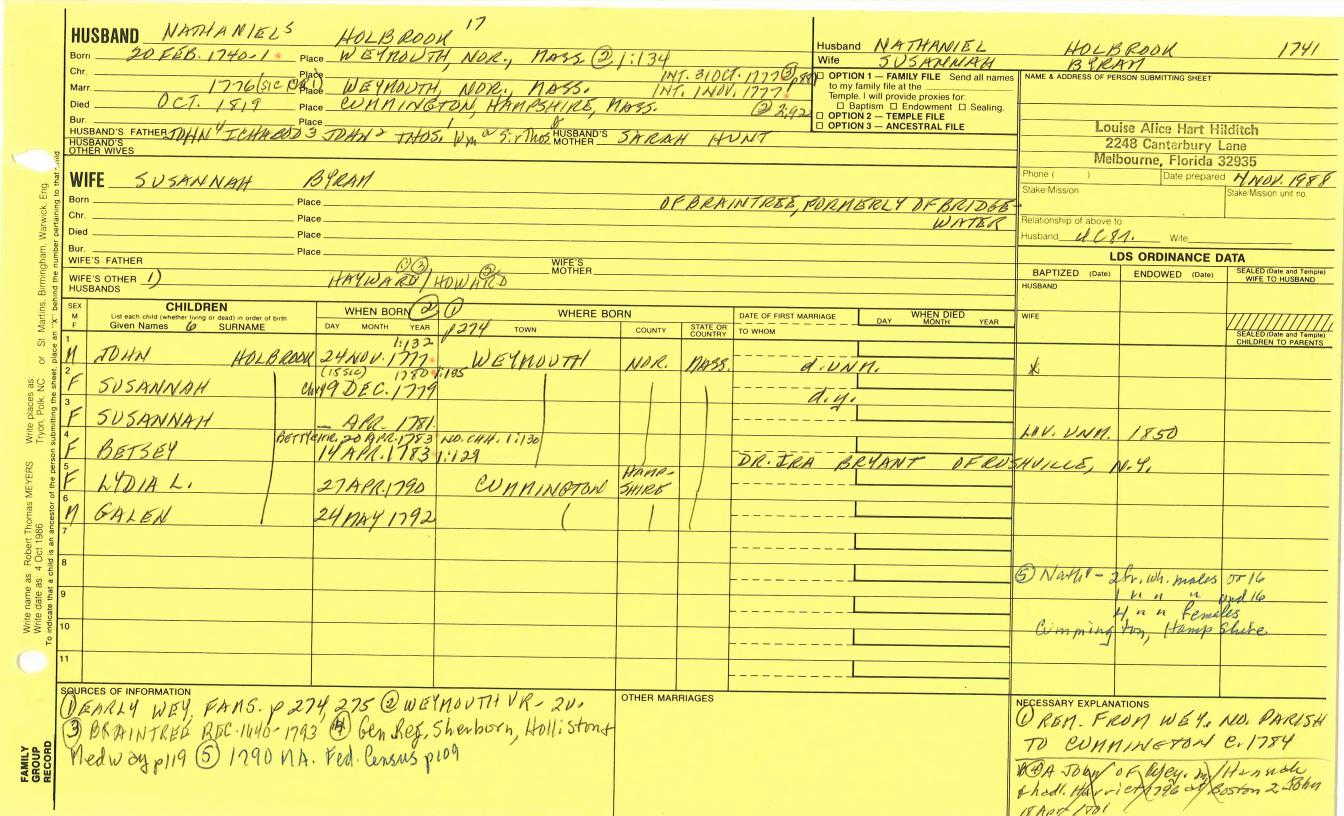 HUSBAND NATHANIEL⁵ HOLBROOK 17
Born 20 FEB. 1740-1 Place WEYMOUTH, NOR., MASS. ② 1:134
Chr. Place INT. 31 OCT. 1777 ③
Marr 1776 (SIC Place WEYMOUTH, NOR., MASS. INT. 1 NOV. 1777
Died OCT. 1819 Place CUMMINGTON, HAMPSHIRE, MASS. ② 2:92
Bur. Place
HUSBAND'S FATHER JOHN⁴ ICHABOD³ JOHN² THOS. Wm Sir Thos HUSBAND'S MOTHER SARAH HUNT
HUSBAND'S OTHER WIVES
Husband NATHANIEL HOLBROOK 1741
Wife SUSANNAH BYRAM
☐ OPTION 1 — FAMILY FILE Send all names
to my family file at the
Temple. I will provide proxies for
☐ Baptism ☐ Endowment ☐ Sealing.
☐ OPTION 2 — TEMPLE FILE
☐ OPTION 3 — ANCESTRAL FILE
NAME & ADDRESS OF PERSON SUBMITTING SHEET
Louise Alice Hart Hilditch
2248 Canterbury Lane
Melbourne, Florida 32935
Phone ( ) Date prepared 4 NOV. 1988
Stake/Mission Stake/Mission unit no.
Relationship of above to
Husband Wife
WIFE SUSANNAH BYRAM
Born Place OF BRAINTREE, FORMERLY OF BRIDGE-
Chr. Place WATER
Died Place
Bur. Place
WIFE'S FATHER WIFE'S MOTHER
WIFE'S OTHER HUSBANDS 1) HAYWARD ① ③ / HOWARD
LDS ORDINANCE DATA
BAPTIZED (Date) ENDOWED (Date) SEALED (Date and Temple) WIFE TO HUSBAND
HUSBAND
WIFE
SEALED (Date and Temple) CHILDREN TO PARENTS
SEX M F
CHILDREN
List each child (whether living or dead) in order of birth
Given Names 6 SURNAME
WHEN BORN ② ①
DAY MONTH YEAR
p274
WHERE BORN
TOWN COUNTY STATE OR COUNTRY
DATE OF FIRST MARRIAGE
TO WHOM
WHEN DIED
DAY MONTH YEAR
1:132
1 M JOHN HOLBROOK 24 NOV. 1777 WEYMOUTH NOR. MASS. d. unm.
(15 SIC) 1780 1:135
2 F SUSANNAH 19 DEC. 1779 d.y.
3 F SUSANNAH — APR. 1781 LIV. UNM. 1850
20 APR. 1783 NO. CHH. 1:130
4 F BETSEY 14 APR. 1783 1:129 DR. IRA BRYANT OF RUSHVILLE, N.Y.
5 F LYDIA L. 27 APR 1790 CUMMINGTON HAMP-SHIRE
6 M GALEN 24 MAY 1792
7
8
9
10
11
⑤ Nath'l - 2 fr. wh. males or 16
1 " " " und 16
4 " " females
Cummington, Hampshire
SOURCES OF INFORMATION
① EARLY WEY. FAMS. p 274, 275 ② WEYMOUTH VR - 2v.
③ BRAINTREE REC. 1640-1793 ④ Gen. Reg. Sherborn, Holliston &
Medway p119 ⑤ 1790 MA. Fed. Census p109
OTHER MARRIAGES
NECESSARY EXPLANATIONS
① REM. FROM WEY. NO. PARISH
TO CUMMINGTON C. 1784
A John of Wey. m/ Hannah
& had Harriet 1796 at Boston 2 John
FAMILY GROUP RECORD
Write name as: Robert Thomas MEYERS Write places as: Tryon, Polk, NC or St. Martins, Birmingham, Warwick, Eng.
Write date as: 4 Oct 1986
To indicate that a child is an ancestor of the person submitting the sheet, place an "X" behind the number pertaining to that child